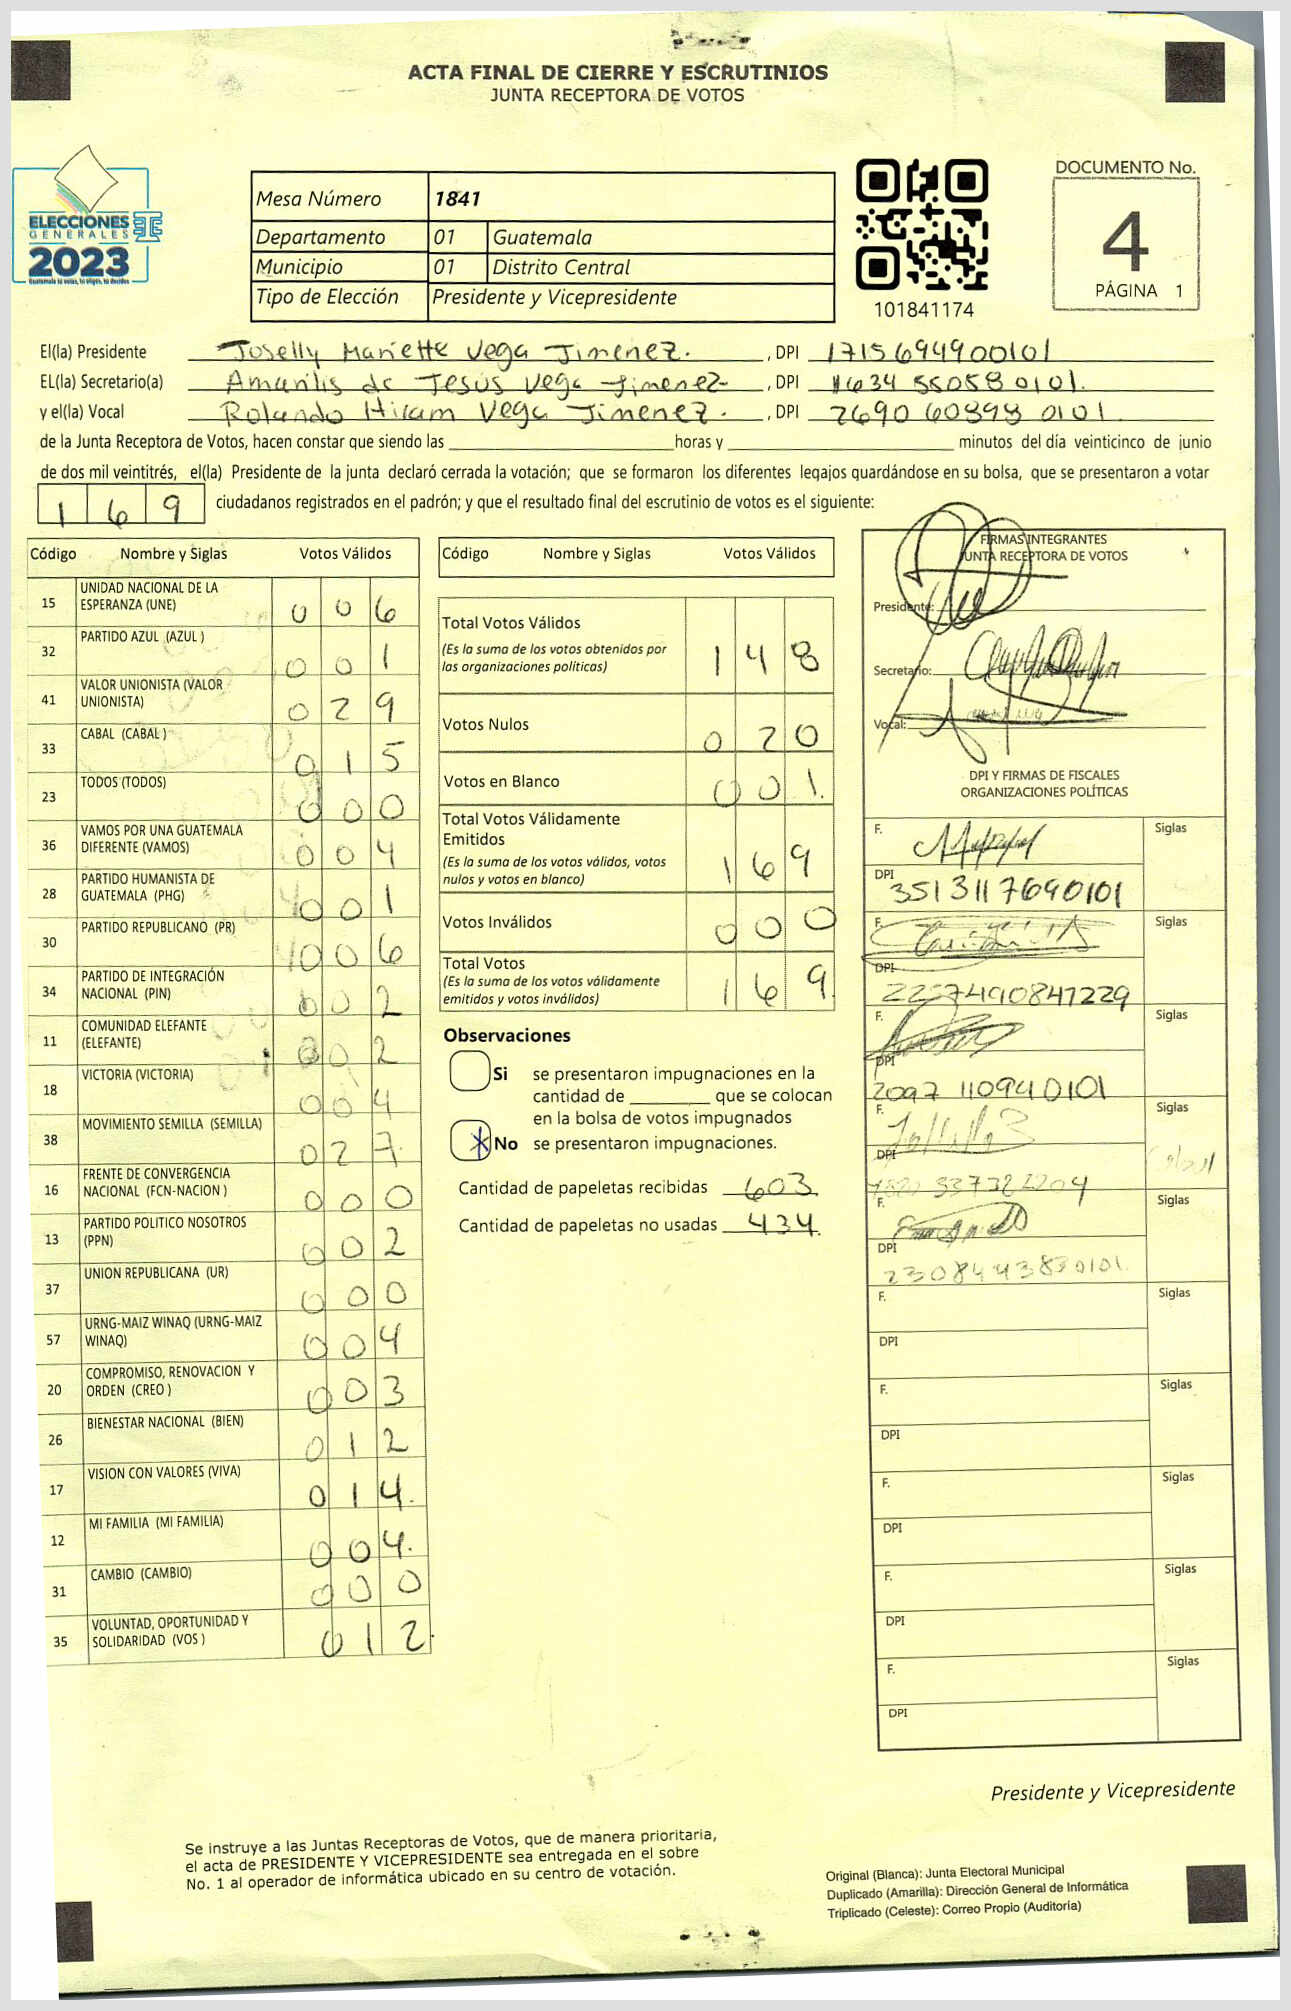 ACTA FINAL DE CIERRE Y ESCRUTINIOS
JUNTA RECEPTORA DE VOTOS
ELECCIONES
GENERALES
2023
Guatemala tú votas, tú eliges, tú decides
Mesa Número 1841
Departamento 01 Guatemala
Municipio 01 Distrito Central
Tipo de Elección Presidente y Vicepresidente
101841174
DOCUMENTO No.
4
PÁGINA 1
El(la) Presidente Joselly Mariette Vega Jimenez. , DPI 1715694900101
EL(la) Secretario(a) Amarilis de Jesús Vega Jimenez , DPI 1634 55058 0101.
y el(la) Vocal Rolando Hiram Vega Jimenez. , DPI 2690 60898 0101
de la Junta Receptora de Votos, hacen constar que siendo las horas y minutos del día veinticinco de junio
de dos mil veintitrés, el(la) Presidente de la junta declaró cerrada la votación; que se formaron los diferentes legajos quardándose en su bolsa, que se presentaron a votar
169 ciudadanos registrados en el padrón; y que el resultado final del escrutinio de votos es el siguiente:
Código Nombre y Siglas Votos Válidos
15 UNIDAD NACIONAL DE LA ESPERANZA (UNE) 006
32 PARTIDO AZUL (AZUL ) 001
41 VALOR UNIONISTA (VALOR UNIONISTA) 029
33 CABAL (CABAL ) 015
23 TODOS (TODOS) 000
36 VAMOS POR UNA GUATEMALA DIFERENTE (VAMOS) 004
28 PARTIDO HUMANISTA DE GUATEMALA (PHG) 001
30 PARTIDO REPUBLICANO (PR) 006
34 PARTIDO DE INTEGRACIÓN NACIONAL (PIN) 002
11 COMUNIDAD ELEFANTE (ELEFANTE) 002
18 VICTORIA (VICTORIA) 004
38 MOVIMIENTO SEMILLA (SEMILLA) 027
16 FRENTE DE CONVERGENCIA NACIONAL (FCN-NACION ) 000
13 PARTIDO POLITICO NOSOTROS (PPN) 002
37 UNION REPUBLICANA (UR) 000
57 URNG-MAIZ WINAQ (URNG-MAIZ WINAQ) 004
20 COMPROMISO, RENOVACION Y ORDEN (CREO ) 003
26 BIENESTAR NACIONAL (BIEN) 012
17 VISION CON VALORES (VIVA) 014.
12 MI FAMILIA (MI FAMILIA) 004.
31 CAMBIO (CAMBIO) 000
35 VOLUNTAD, OPORTUNIDAD Y SOLIDARIDAD (VOS ) 012.
Código Nombre y Siglas Votos Válidos
Total Votos Válidos
(Es la suma de los votos obtenidos por
las organizaciones políticas) 148
Votos Nulos 020
Votos en Blanco 001.
Total Votos Válidamente
Emitidos
(Es la suma de los votos válidos, votos
nulos y votos en blanco) 169
Votos Inválidos 000
Total Votos
(Es la suma de los votos válidamente
emitidos y votos inválidos) 169.
Observaciones
Si se presentaron impugnaciones en la
cantidad de que se colocan
en la bolsa de votos impugnados
X No se presentaron impugnaciones.
Cantidad de papeletas recibidas 603.
Cantidad de papeletas no usadas 434.
FIRMAS INTEGRANTES
JUNTA RECEPTORA DE VOTOS
Presidente:
Secretario:
Vocal:
DPI Y FIRMAS DE FISCALES
ORGANIZACIONES POLÍTICAS
F. Siglas
DPI 3513117690101
F. Siglas
DPI 2257490847229
F. Siglas
DPI 2097 110940101
F. Siglas
DPI
F. Siglas
DPI 2308443850101.
F. Siglas
DPI
F. Siglas
DPI
F. Siglas
DPI
F. Siglas
DPI
F. Siglas
DPI
Presidente y Vicepresidente
Se instruye a las Juntas Receptoras de Votos, que de manera prioritaria,
el acta de PRESIDENTE Y VICEPRESIDENTE sea entregada en el sobre
No. 1 al operador de informática ubicado en su centro de votación.
Original (Blanca): Junta Electoral Municipal
Duplicado (Amarilla): Dirección General de Informática
Triplicado (Celeste): Correo Propio (Auditoría)